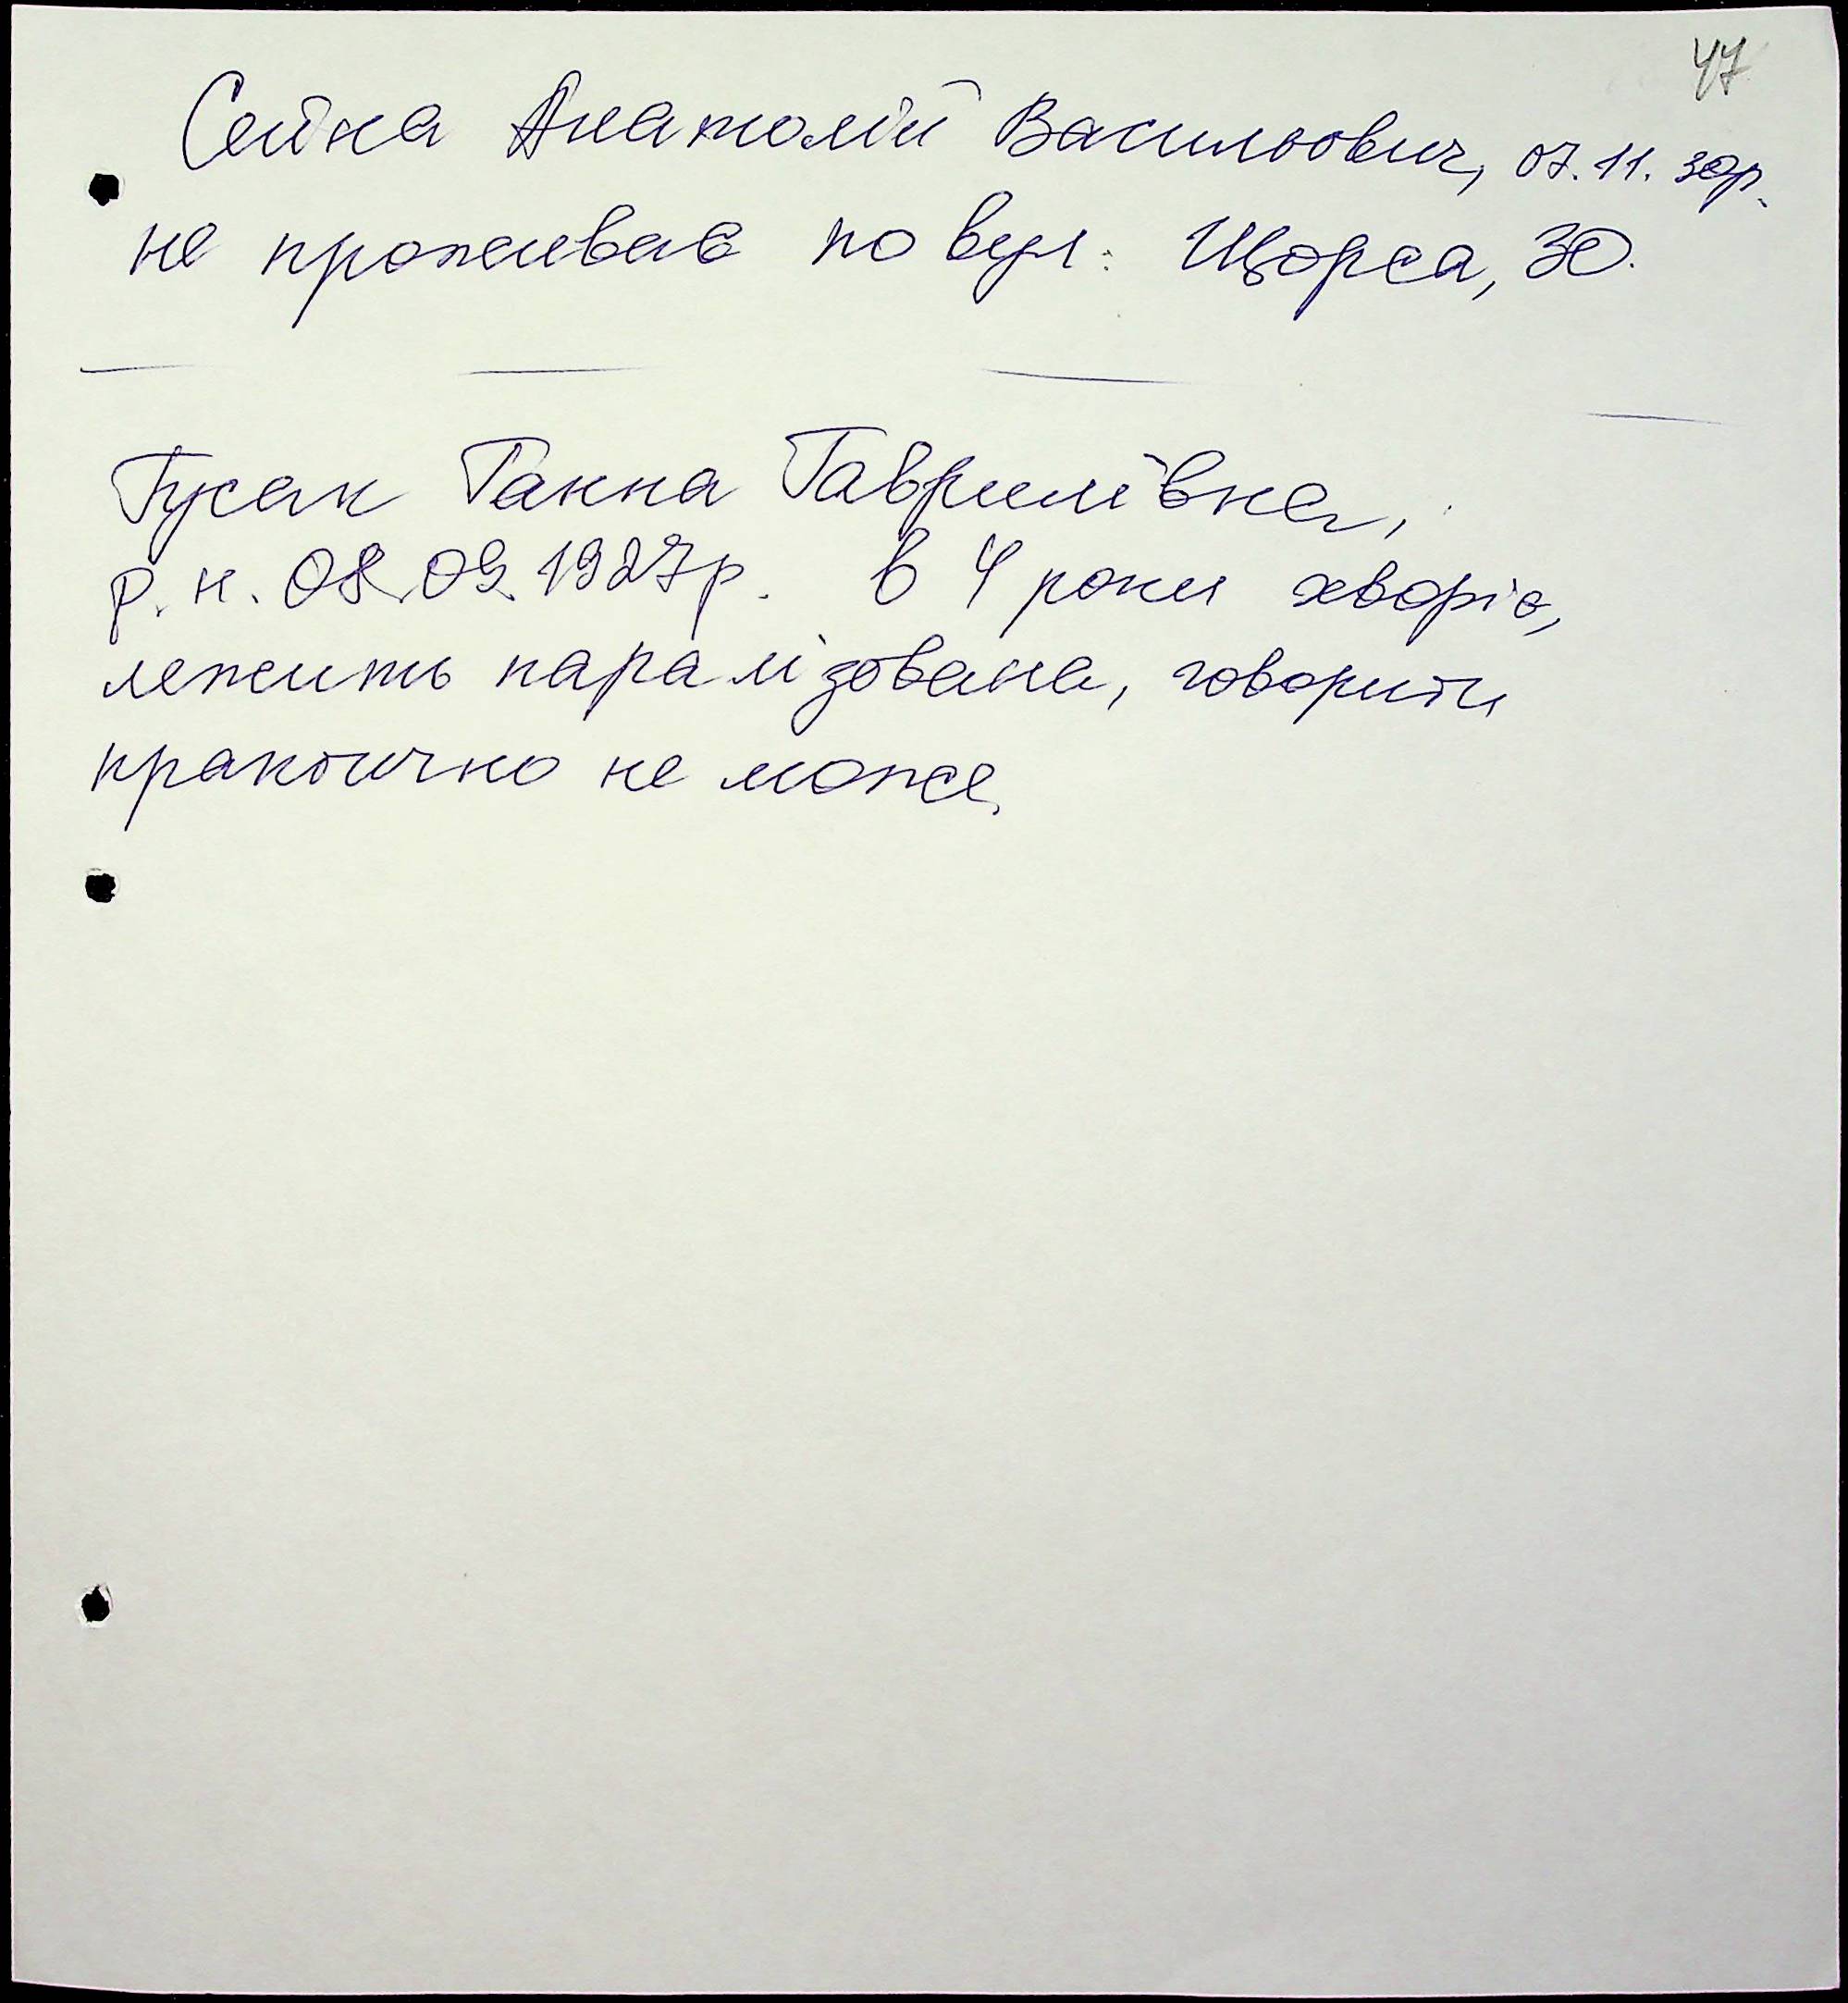 47
Сейка Анатолій Васильович, 07.11. 30р.
не проживає по вул. Щорса, 30.
Гусак Ганна Гаврилівна,
р. н. 08.09.1927р. в 4 роки хворіє,
лежить паралізована, говорити
практично не може.